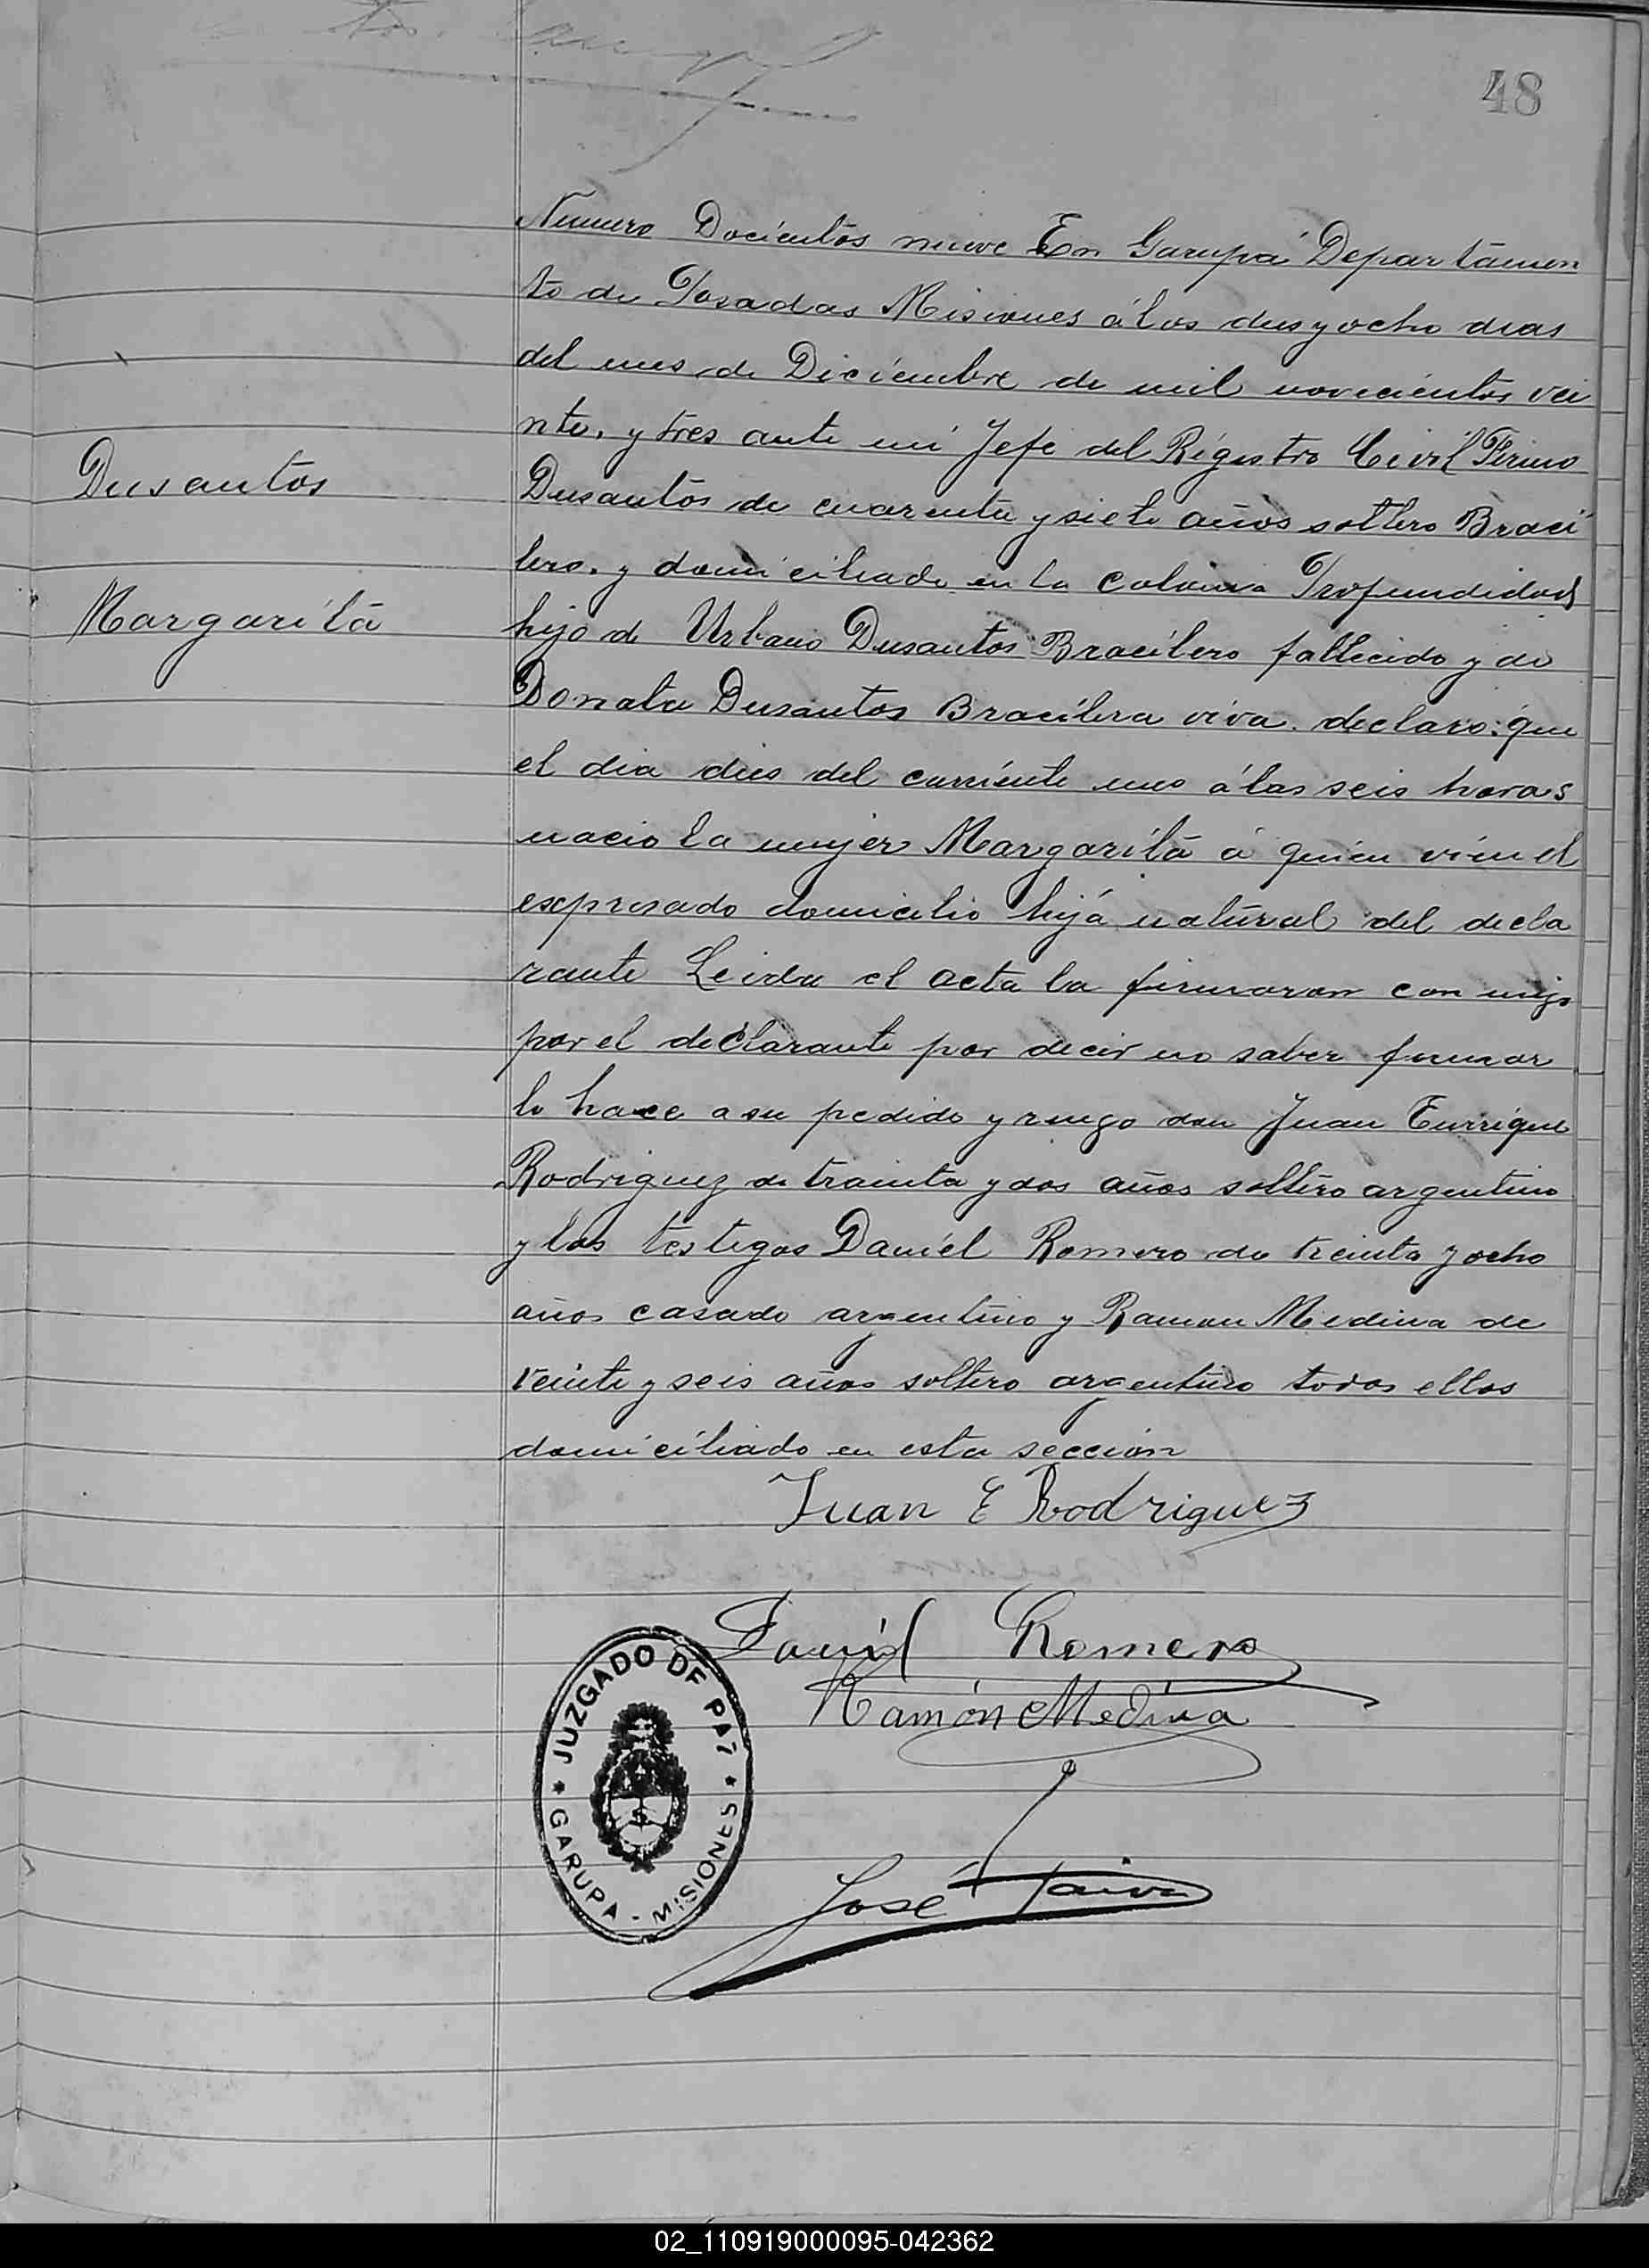 48
Numero Docientos nueve En Garupá Departamen
to de Posadas Misiones á los diesyocho dias
del mes de Diciembre de mil novecientos vei
nte, y tres ante mi Jefe del Registro Civil Firmo
Dusantos de cuarenta y siete años soltero Braci
lero, y domiciliado en la colonia Profundidad
hijo de Urbano Dusantos Bracilero fallecido y de
Donata Dusantos Bracilera viva declaro: que
el dia dies del corriente mes á las seis horas
nacio la mujer Margarita á quien vi en el
expresado domicilio hijá natural del decla
rante Leida el acta la firmaron con migo
por el declarante por decir no saber firmar
lo hace a su pedido y ruego don Juan Enrrique
Rodriguez de trainta y dos años soltero argentino
y los testigos Daniel Romero de treinta y ocho
años casado argentino y Ramon Medina de
veinte y seis años soltero argentino todos ellos
domiciliado en esta sección
Dusantos
Margarita
Juan E Rodriguez
Daniel Romero
Ramón Medina
José Paiva
JUZGADO DE PAZ
GARUPA - MISIONES
02_110919000095-042362